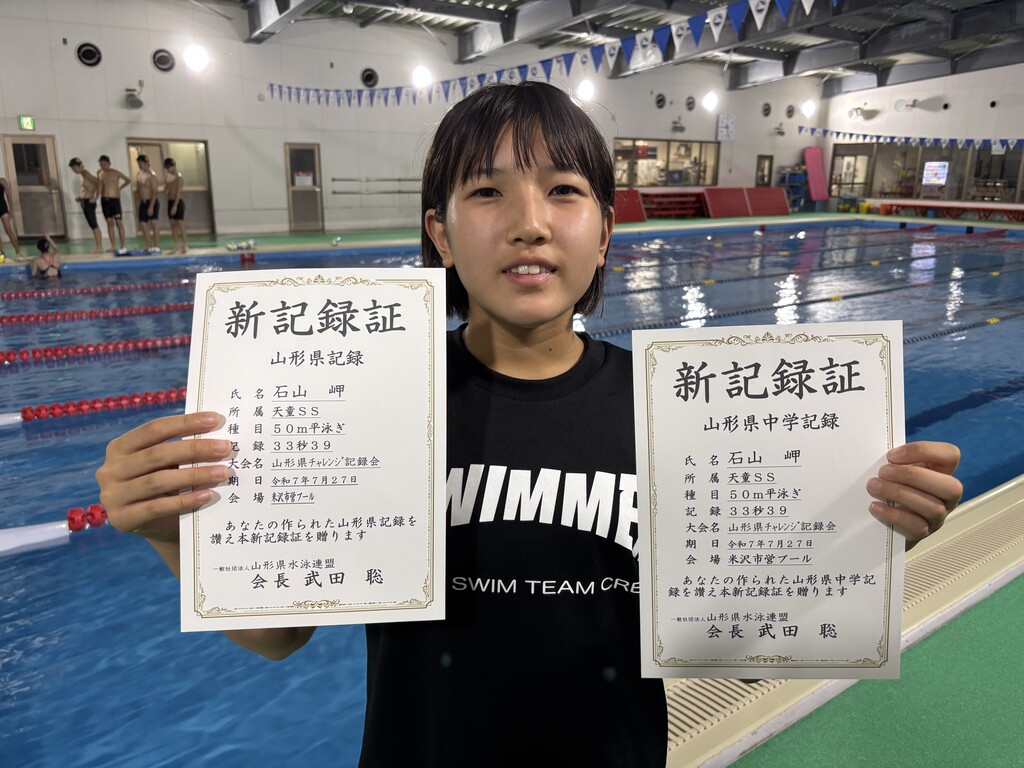 新記録証
山形県記録
氏 名 石山 岬
所 属 天童SS
種 目 50m平泳ぎ
記 録 33秒39
大会名 山形県ﾁｬﾚﾝｼﾞ記録会
期 日 令和7年7月27日
会 場 米沢市営ﾌﾟｰﾙ
あなたの作られた山形県記録を
讃え本新記録証を贈ります
一般社団法人山形県水泳連盟
会長 武田 聡
新記録証
山形県中学記録
氏 名 石山 岬
所 属 天童SS
種 目 50m平泳ぎ
記 録 33秒39
大会名 山形県ﾁｬﾚﾝｼﾞ記録会
期 日 令和7年7月27日
会 場 米沢市営プール
あなたの作られた山形県中学記
録を讃え本新記録証を贈ります
一般社団法人山形県水泳連盟
会長 武田 聡
WIMME
SWIM TEAM CRE